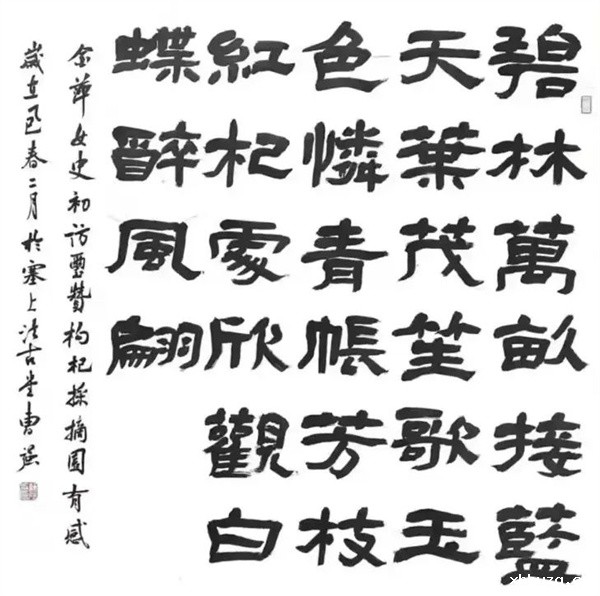 碧林萬畝接藍
天葉茂笙歌玉
色憐青帳芳枝
紅杞處欣觀白
蝶醉風翩
余華女史初訪璽贊枸杞採摘園有感
歲在乙巳春二月於塞上法古堂曹